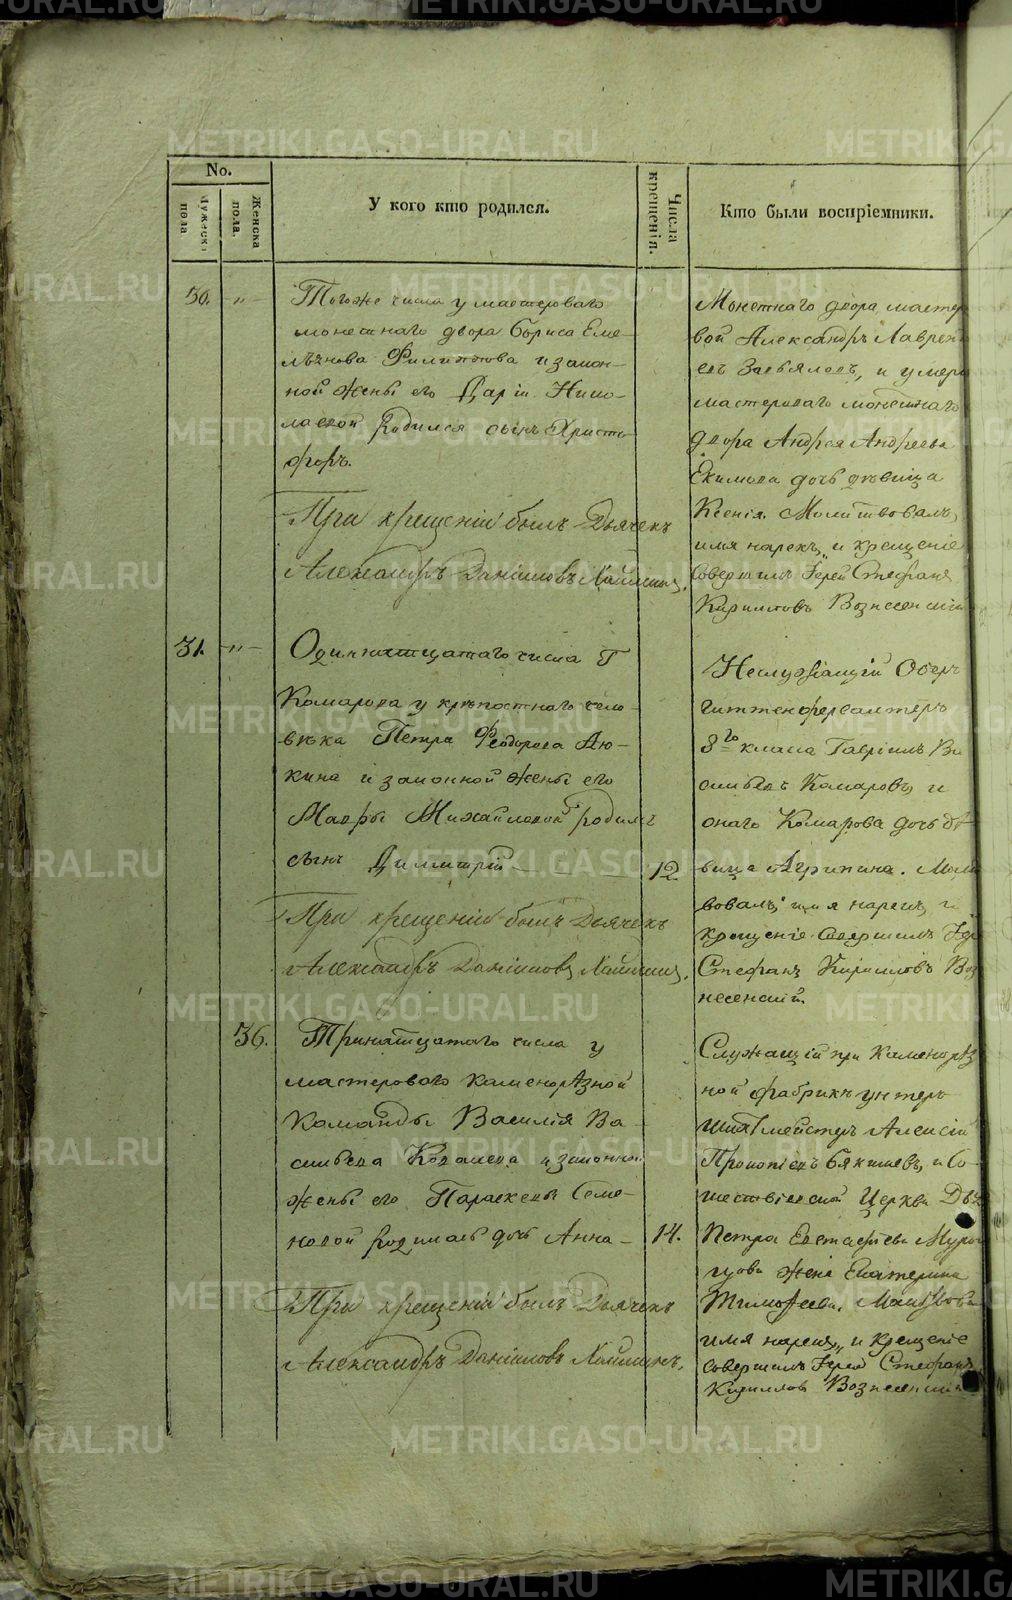 No.
Мужеска пола
Женска пола.
У кого кто родился.
Числа крещенія.
Кто были воспріемники.
30. "
Тогоже числа у мастероваго
монетнаго двора Бориса Еме-
льянова Филиппова и закон-
ной жены его Даріи Нико-
лаевой родился сынъ Христо-
форъ.
При крещеніи былъ Дьячекъ
Александръ Даніиловъ
Монетнаго двора мастеро
вой Александръ Лаврен
евъ Завьяловъ, и умер
мастероваго монетнаго
двора Андрея Андреева
Екимова дочь дѣвица
Ксенія. Молитвовалъ,
имя нарекъ, и крещеніе
совершилъ Іерей Стефанъ
Кирилловъ Вознесенскій
31. "
Одиннатцатаго числа Г
Комарова у крѣпостнаго чело-
вѣка Петра Феодорова Лю-
кина и законной жены его
Мавры Михайловой родился
сынъ Димитрій
12
При крещеніи былъ Дьячекъ
Александръ Даніиловъ
Неслужащій Оберъ
гиттенфервалтеръ
8го класса Гавріилъ Ва
сильевъ Комаровъ, и
онаго Комарова дочь дѣ
вица Агрипина. Молит
вовалъ, имя нарекъ, и
крещеніе совершилъ Іерей
Стефанъ Кирилловъ Воз
несенскій.
36.
Тринатцатаго числа у
мастероваго каменорѣзной
команды Василія Ва-
сильева Ковалева и законной
жены его Параскевы Семе-
новой родилась дочь Анна
14.
При крещеніи былъ Дьячекъ
Александръ Даніиловъ
Служащій при Каменорѣз
ной фабрикѣ унтеръ
шихтмейстеръ Алексій
Прокопіевъ Бякишевъ, и Со-
шествіевской Церкви Дья
Петра Евстафіева
жена Екатерина
Тимофеева. Молитвовалъ
имя нарекъ, и крещеніе
совершилъ Іерей Стефанъ
Кирилловъ Вознесенскій
METRIKI.GASO-URAL.RU